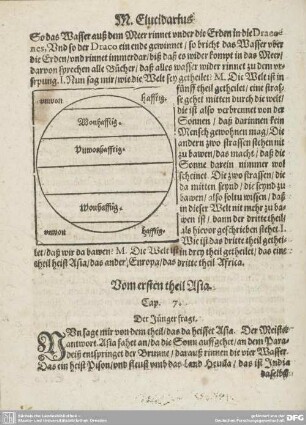 M. Elucidarius
So das Wasser auß dem Meer rinnet vnder die Erden in die Draco-
nes. Vnd so der Draco ein ends gewinnet / so bricht das Wasser vber
die Erden / vnd rinnet immerdar / biß daß es wider kompt in das Meer /
darvon sprechen alle Bücher / daß alles wasser wider rinnet zu dem vr-
sprung. J. Nun sag mir / wie die Welt sey getheilet: M. Die Welt ist in
fünff theil getheilet / eine straß-
se gehet mitten durch die welt /
die ist also verbrennt von der
Sonnen / daß darinnen kein
Mensch gewohnen mag / Die
andern zwo strassen stehen mit
zu bawen / das macht / daß die
Sonne darein nimmer wol
scheinet. Die zwo strassen / die
da mitten seynd / die seynd zu
bawen / also soltu wissen / daß
in dieser Welt nit mehr zu ba-
wen ist / dann der dritte theil /
als hievor geschrieben stehet. J.
Wie ist das dritte theil gethei-
let / daß wir da bawen: M. Die Welt ist in drey theil getheilet / das eine
theil heist Asia / das ander / Europa / das dritte theil Africa.
vnwon
hafftig.
Wonhafftig.
Vnwonhafftig.
Wonhafftig.
vnwon
hafftig.
Vom ersten theil Asia.
Cap. 7.
Der Jünger fragt.
NVn sage mir von dem theil / das da heisset Asia. Der Meister
antwort. Asia fahet an / da die Sonn auffgehet / an dem Para-
deiß entspringet der Brunne / darauß rinnen die vier Wasser.
Das ein heist Pison / vnd fleust vmb das Land Heuila / das ist India
daselbst